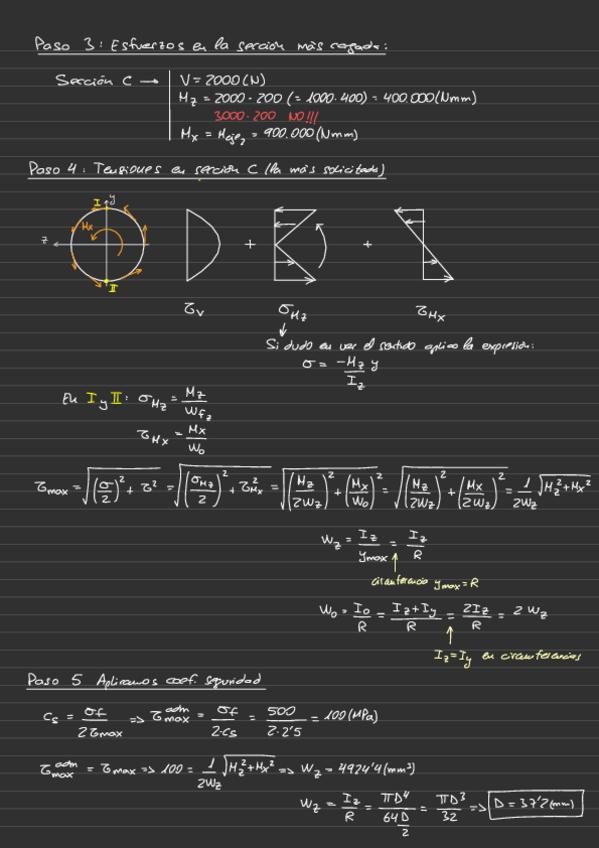 Paso 3: Esfuerzos en la sección más cargada:
Sección C → V = 2000 (N)
Mz = 2000·200 (= 1000·400) = 400.000 (Nmm)
3000·200 NO!!!
Mx = Meje2 = 900.000 (Nmm)
Paso 4: Tensiones en sección C (la más solicitada)
I y
Mx
z
II
+ +
τV σMz τMx
Si dudo en ver el sentido aplico la expresión:
σ = -Mz/Iz y
En I y II: σMz = Mz/Wfz
τMx = Mx/W0
τmax = √((σ/2)² + τ²) = √((σMz/2)² + τ²Mx) = √((Mz/2Wz)² + (Mx/W0)²) = √((Mz/2Wz)² + (Mx/2Wz)²) = 1/2Wz √(Mz² + Mx²)
Wz = Iz/ymax = Iz/R
circunferencia ymax = R
W0 = I0/R = (Iz+Iy)/R = 2Iz/R = 2Wz
Iz = Iy en circunferencias
Paso 5 Aplicamos coef. seguridad
Cs = σf/2τmax => τmax adm = σf/2·Cs = 500/2·2'5 = 100 (MPa)
τmax adm = τmax => 100 = 1/2Wz √(Mz² + Mx²) => Wz = 4924'4 (mm³)
Wz = Iz/R = πD⁴/(64 D/2) = πD³/32 => D = 37'2 (mm)